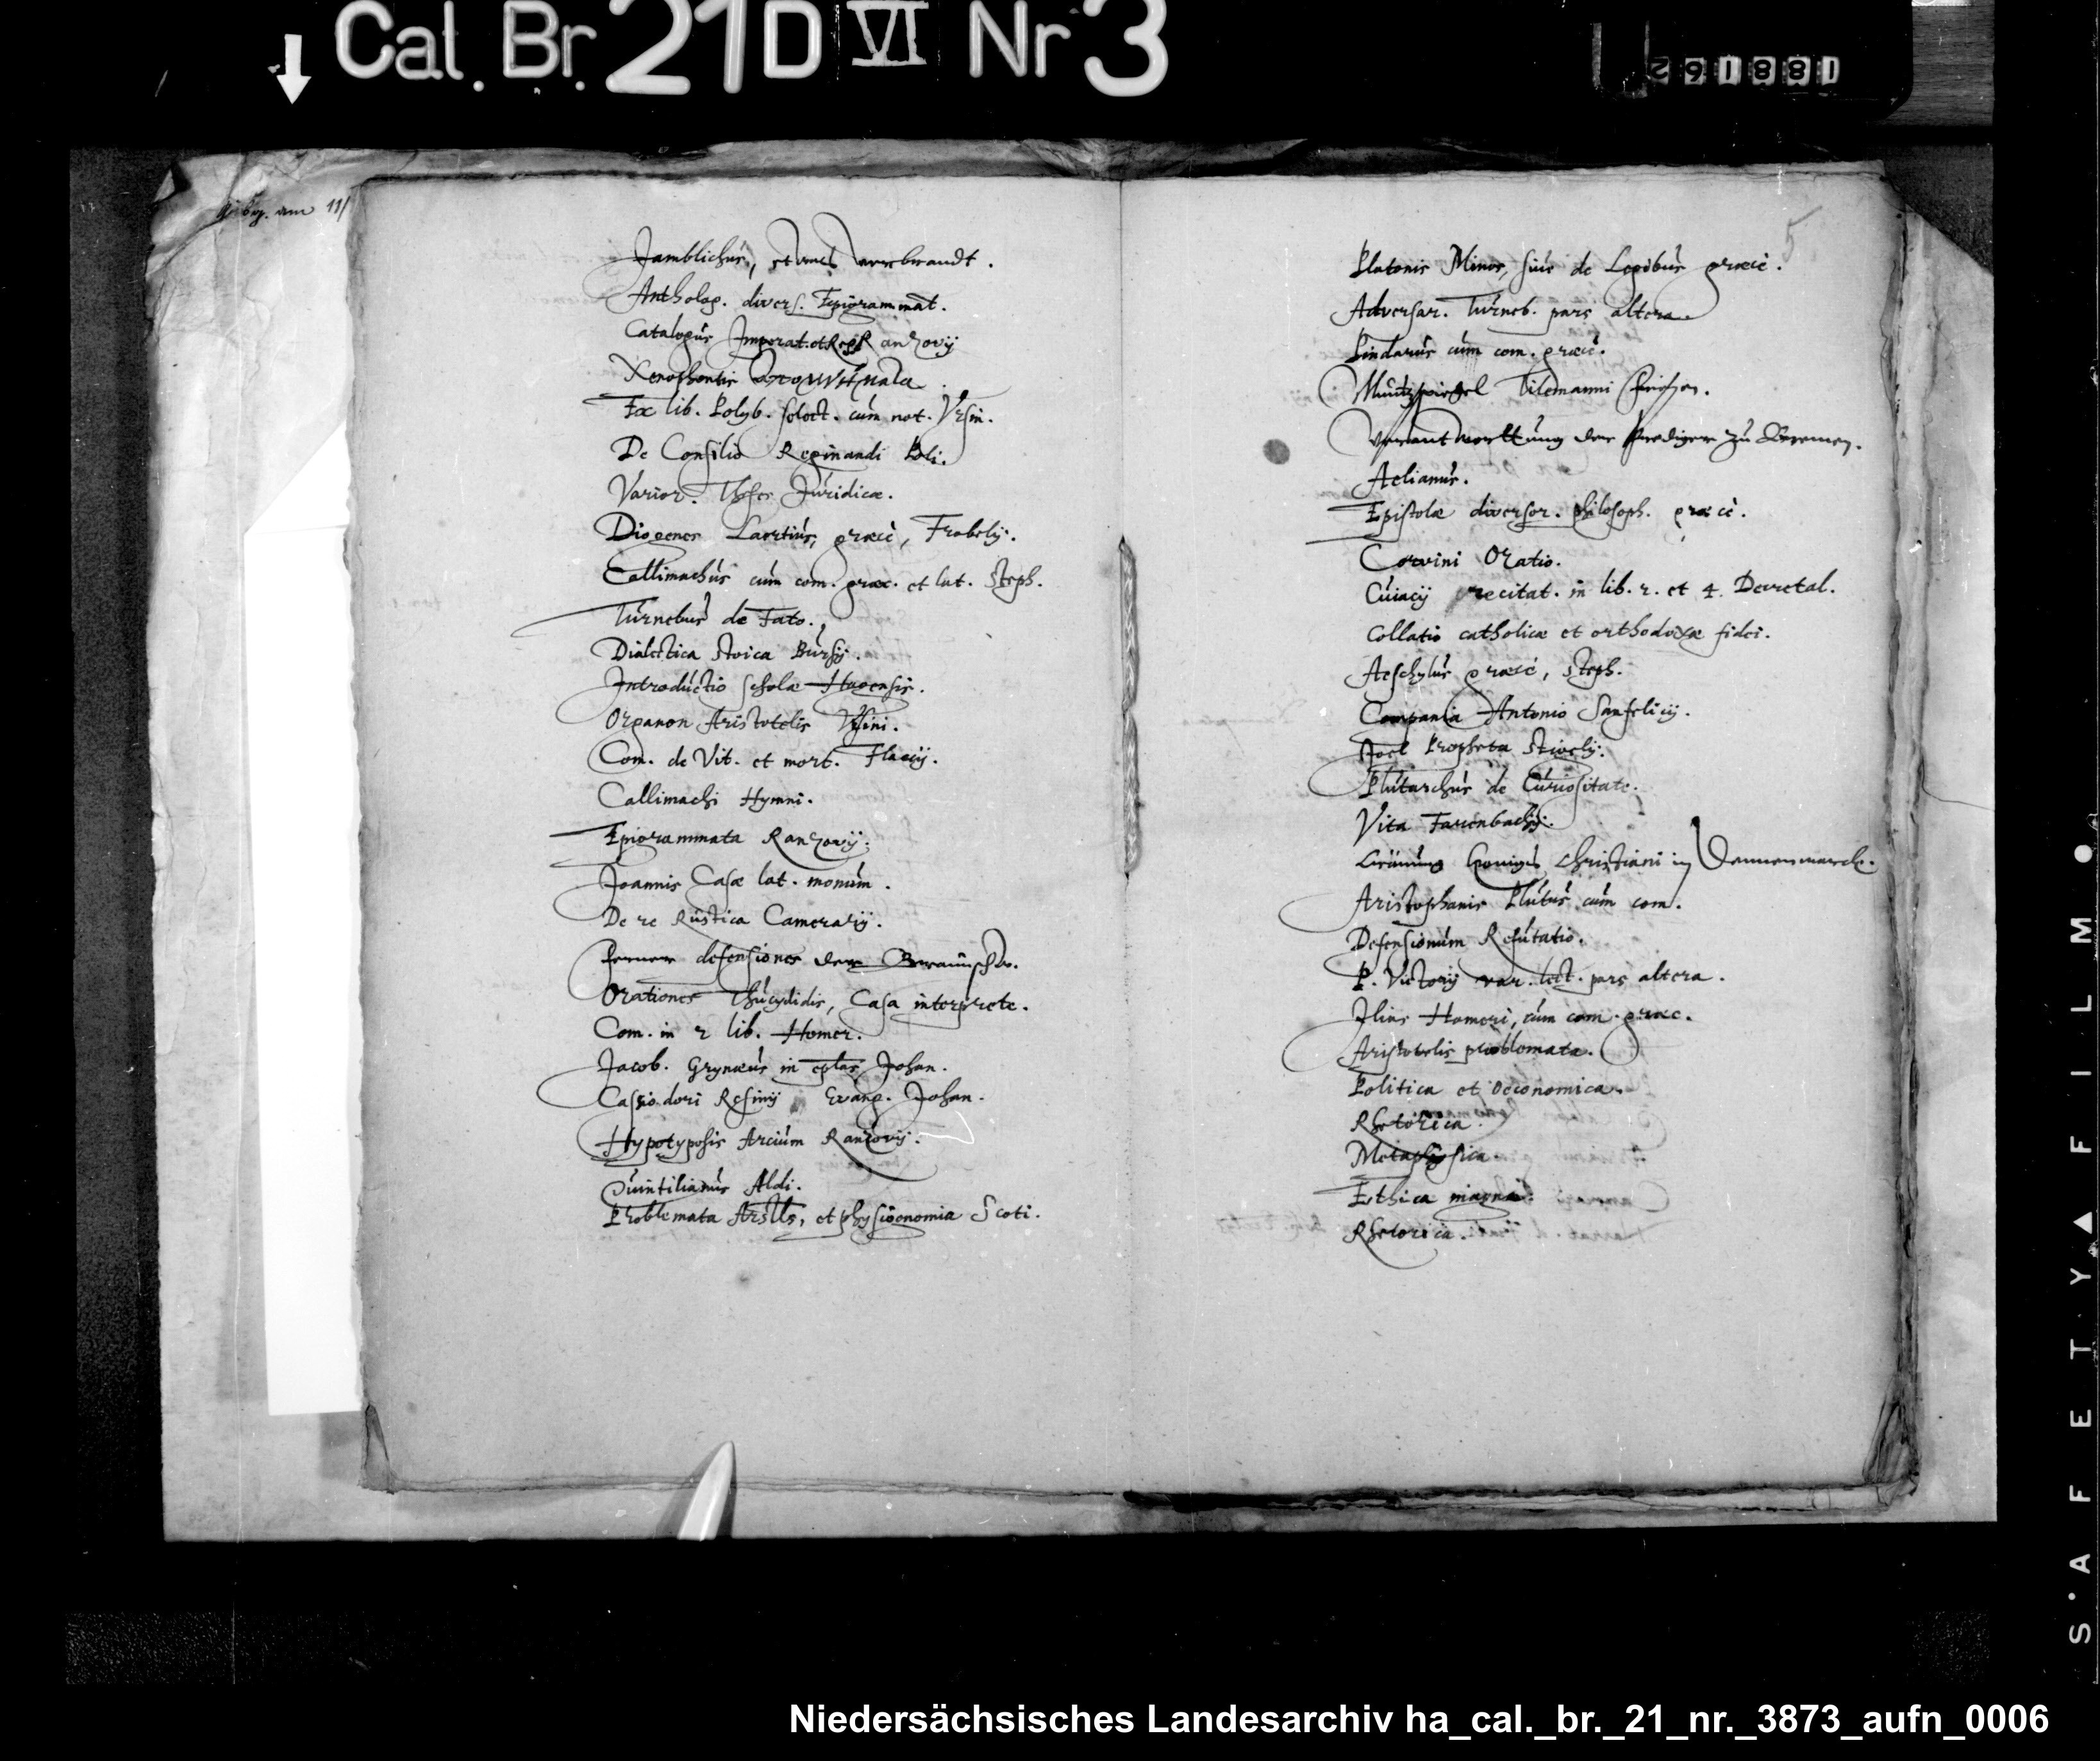 Cat. Br. 21 D VI Nr 3
261881
am 11/
5
Jamblichus, etwas verbrandt.
Antholog. divers. Epigrammat.
Catalogus Imperat. et Reg. Ranzovij
Xenophontis Απομνημονατα
Ex lib. Polyb. select. cum not. Vrsin.
De Consilio Reginandi Poli.
Varior. Theses Juridicæ.
Diogenes Laertius, græcè, Frobelij.
Callimachus cum com. græc. et lat. Steph.
Turnebus de Fato.
Dialectica stoica Bursij.
Introductio scholæ Hagensis.
Organon Aristotelis Vrsini.
Com. de Vit. et mort. Flaccij.
Callimachi Hymni.
Epigrammata Ranzovij.
Joannis Casæ lat. monum.
De re Rustica Camerarij.
Ferner defensiones der Braunschw.
Orationes Thucydidis, Casa interprete.
Com. in 2 lib. Homer.
Jacob. Grynæus in eplas Johan.
Cassiodori Resinij Evang. Johan.
Hypotyposis Arcium Ranzovij.
Quintilianus Aldi.
Problemata Arstls, et physiognomia Scoti.
Platonis Minos, siue de Legibus græcè.
Adversar. Turneb. pars altera.
Pindarus cum com. græcè.
Müntzspiegel Tilemanni Friesen.
Verantworttung der Prediger zu Bremen.
Aelianus.
Epistolæ diversor. philosoph. græcè.
Corvini Oratio.
Cuiacij recitat. in lib. 2. et 4. Decretal.
Collatio catholicæ et orthodoxæ fidei.
Aeschylus græcè, Steph.
Campania Antonio Sanfelicij.
Joel Propheta
Plutarchus de Curiositate.
Vita Farenbachij.
Krönung Königs Christiani in Dennenmarck.
Aristophanis Plutus cum com.
Defensionum Refutatio.
P. Victorij var. lect. pars altera.
Ilias Homeri, cum com. græc.
Aristotelis problemata.
Politica et Oeconomica.
Rhetorica.
Metaphysica.
Ethica magna.
Rhetorica.
SAFETY FILM
Niedersächsisches Landesarchiv ha_cal._br._21_nr._3873_aufn_0006